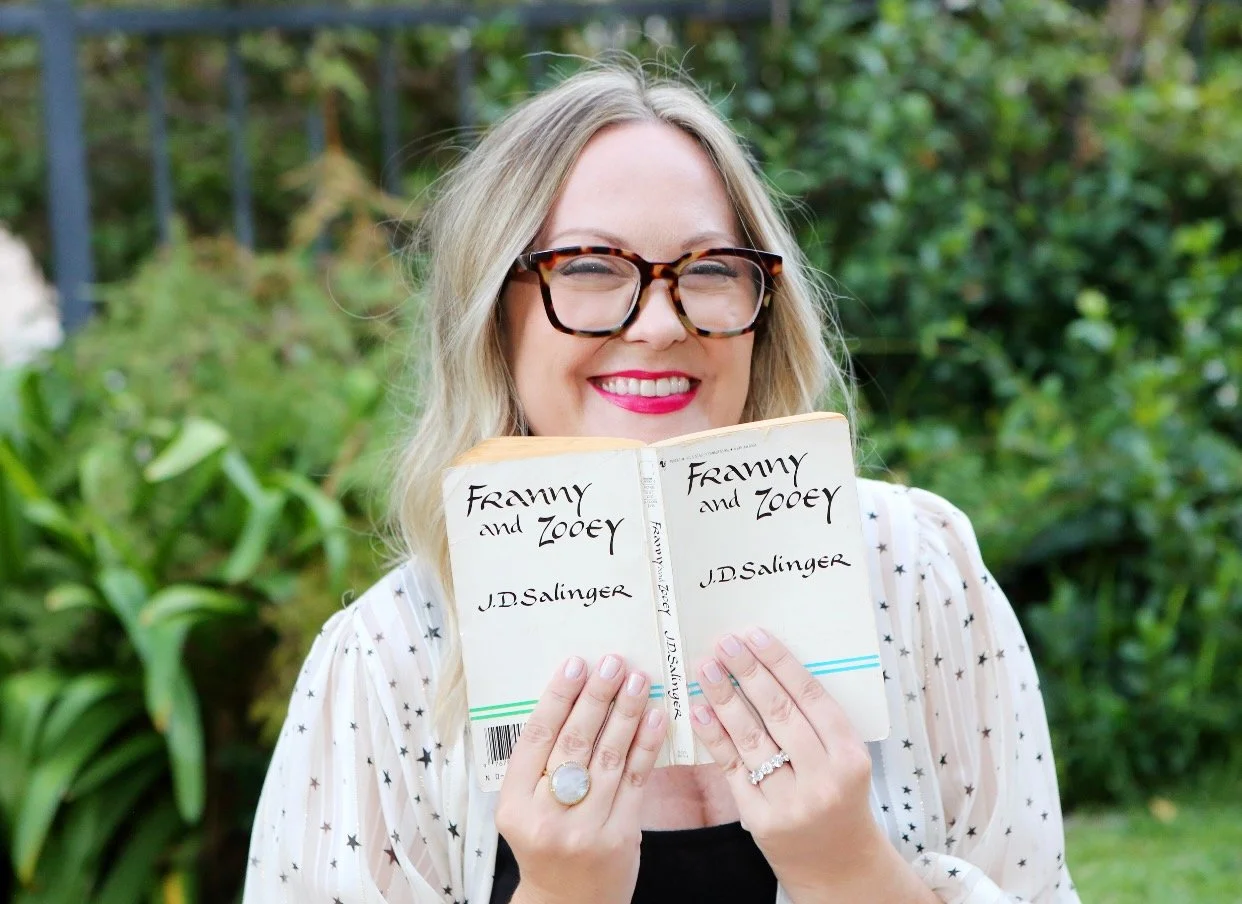 Franny
and Zooey
J.D. Salinger
Franny and Zooey J.D. Salinger
Franny
and Zooey
J.D. Salinger